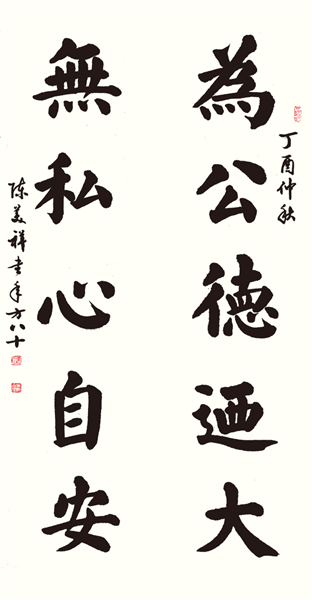 為公德迺大
丁酉仲秋
無私心自安
陈美祥書年方八十